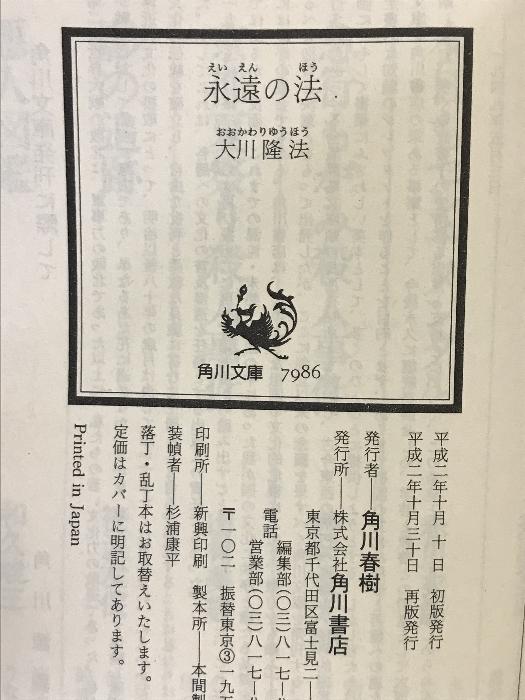 えいえん ほう
永遠の法
おおかわりゆうほう
大川隆法
角川文庫 7986
平成二年十月 十 日 初版発行
平成二年十月三十日 再版発行
発行者――角川春樹
発行所――株式会社角川書店
東京都千代田区富士見二―
電話 編集部(〇三)八一七―
営業部(〇三)八一七―
〒一〇二 振替東京③一九五
印刷所――新興印刷 製本所――本間製
装幀者――杉浦康平
落丁・乱丁本はお取替えいたします。
定価はカバーに明記してあります。
Printed in Japan